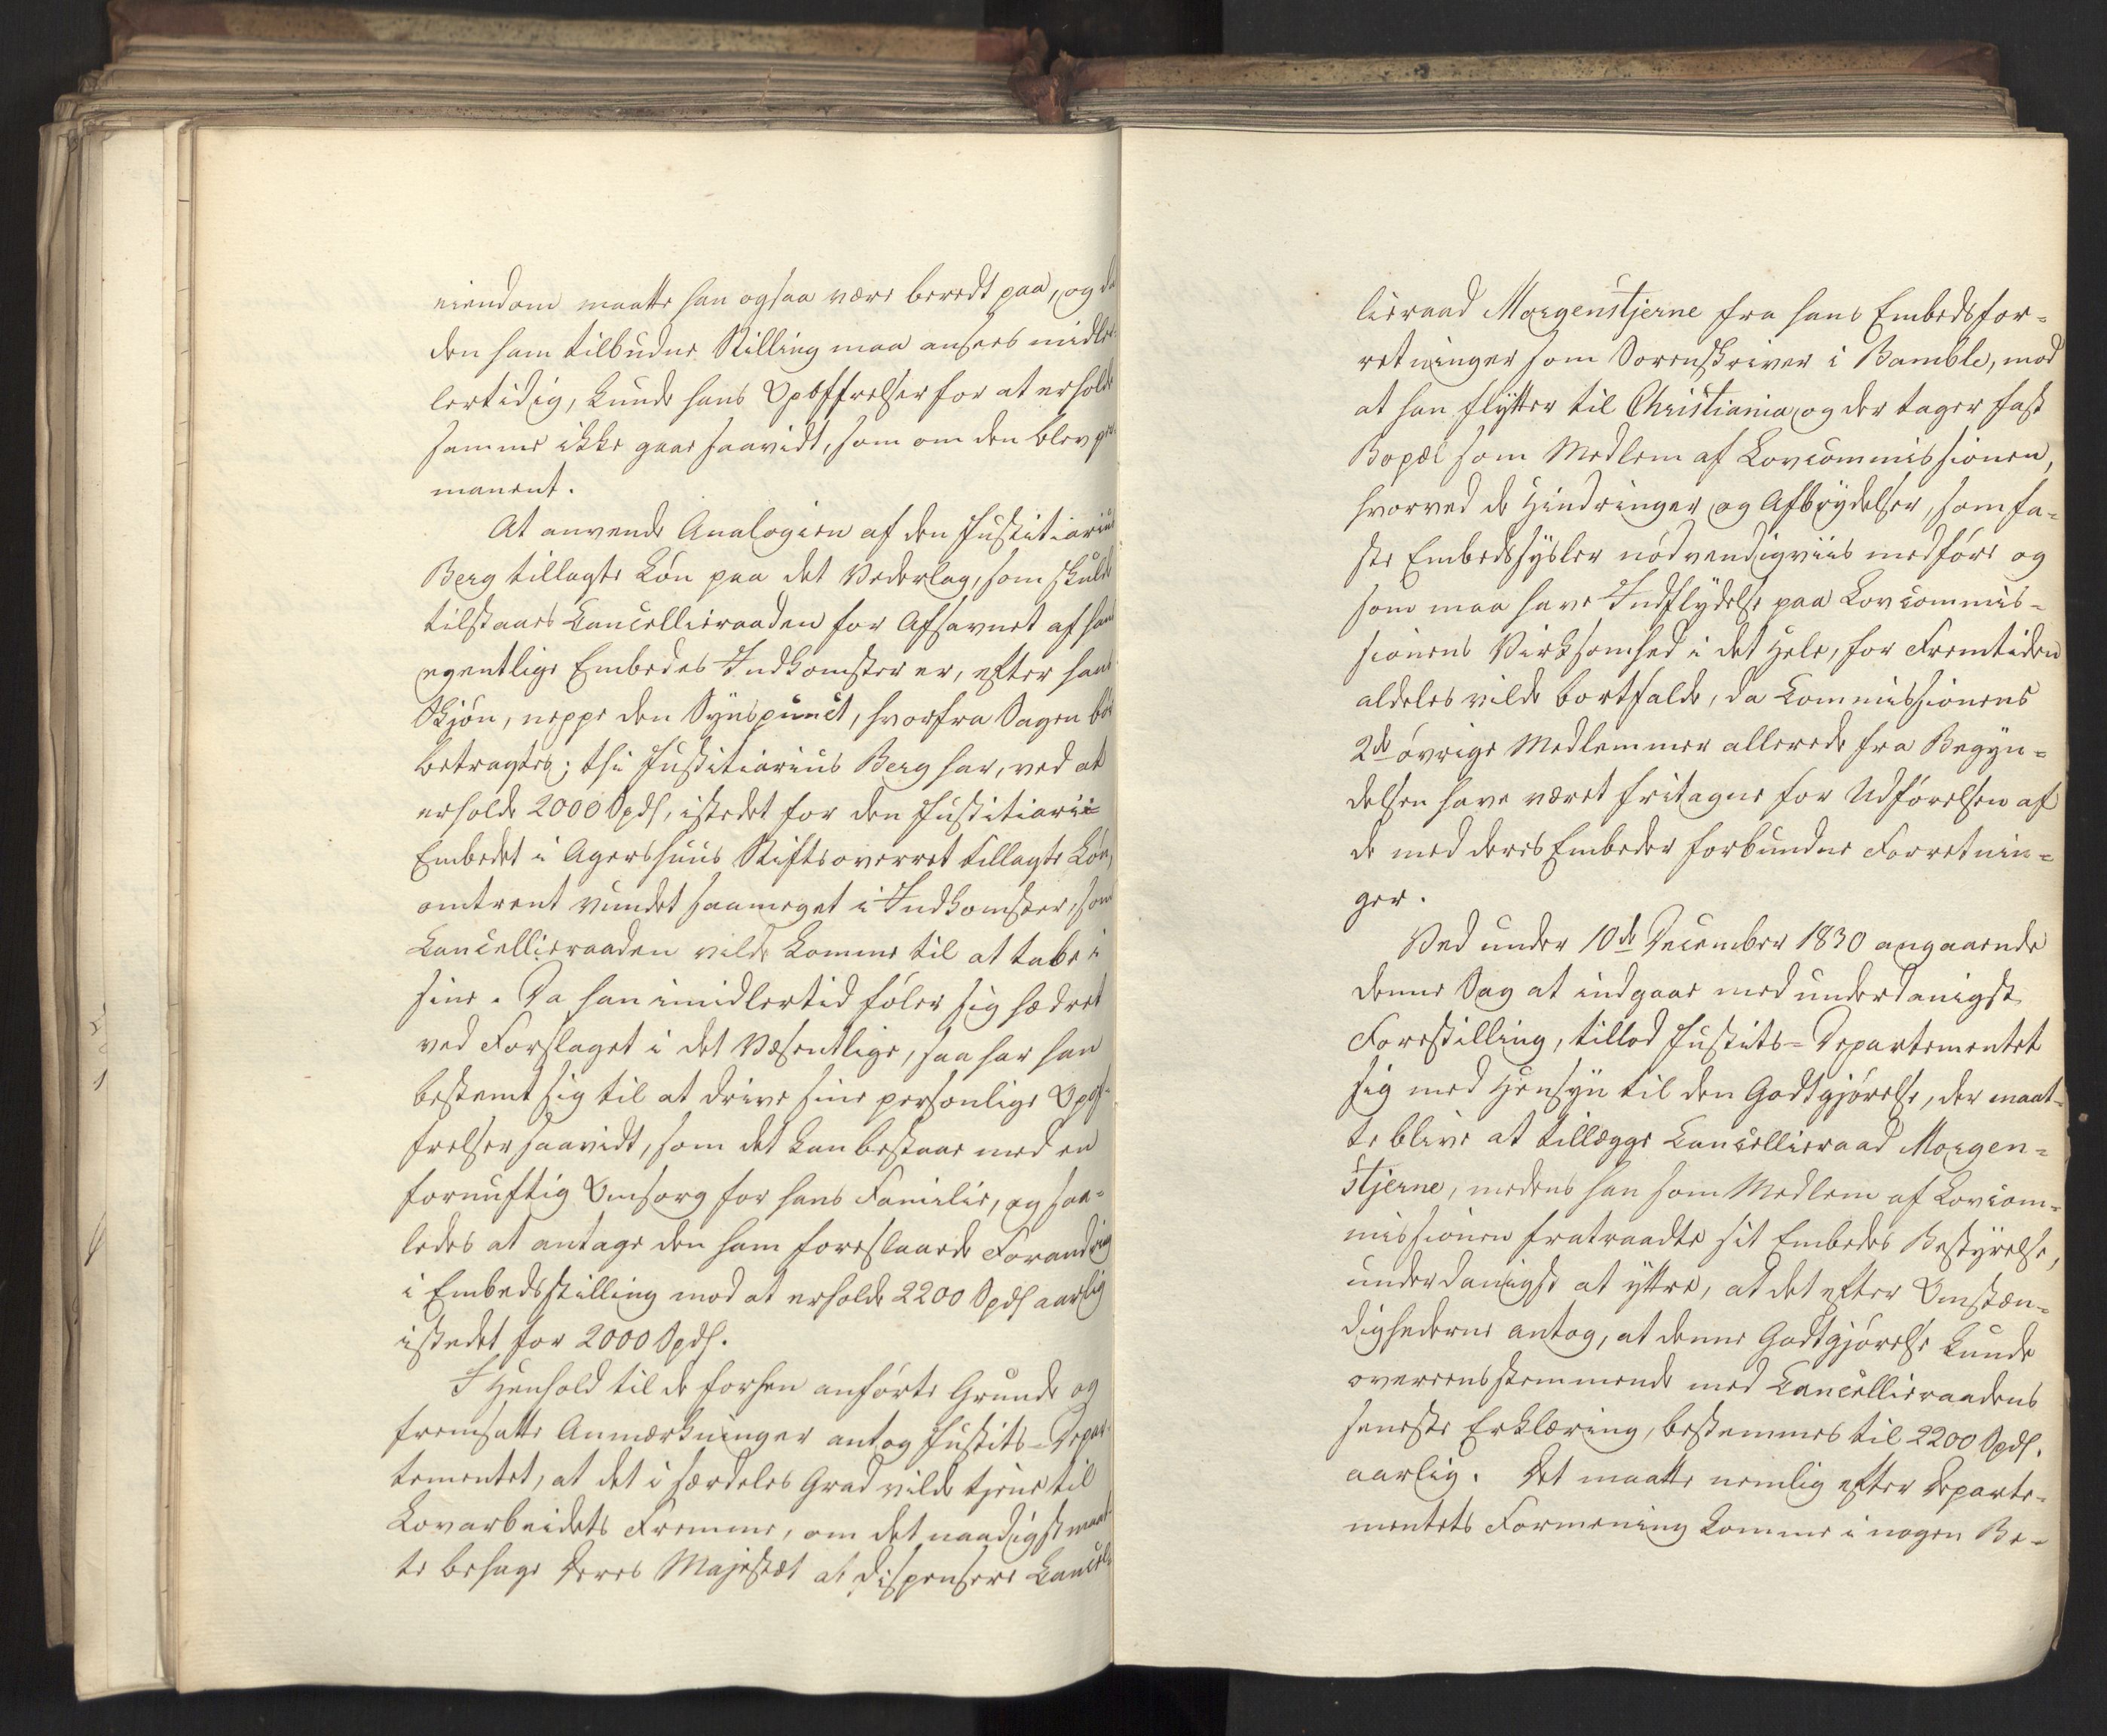 eiendom maatte han ogsaa være beredt paa, og da
den ham tilbudne Stilling maa ansees midler-
lertidig, kunde hans Opoffrelser for at erholde
samme ikke gaae saavidt, som om den blev per-
manent.
At anvende Analogien af den Justitiarius
Berg tillagte Løn paa det Vederlag, som skulde
tilstaaes Cancellieraaden for Afsavnet af hans
egentlige Embedes Indkomster er, efter hans
Skjøn, neppe den Synspunct, hvorfra Sagen bør
betragtes; thi Justitiarius Berg har, ved at
erholde 2000 Spds, istedet for den Justitiarii-
Embedet i Agershuus Stiftsoverret tillagte Løn,
omtrent vundet saameget i Indkomster, som
Cancellieraaden vilde komme til at tabe i
sine. Da han imidlertid føler sig hædret
ved Forslaget i det Væsentlige, saa har han
bestemt sig til at drive sine personlige Opof-
frelser saavidt, som det kan bestaae med en
fornuftig Omsorg for hans Familie, og saa-
ledes at antage den ham foreslaaede Forandring
i Embedsstilling mod at erholde 2200 Spds aarlig
istedet for 2000 Spds.
I Henhold til de forhen anførte Grunde og
fremsatte Anmærkninger antog Justits-Depar-
tementet, at det i særdeles Grad vilde tjene til
Lovarbeidets Fremme, om det naadigst maat-
te behage Deres Majestæt at dispensere Cancel-
lieraad Morgenstjerne fra hans Embedsfor-
retninger som Sorenskriver i Bamble, mod
at han flytter til Christiania og der tager fast
Bopæl som Medlem af Lovcommissionen,
hvorved de Hindringer og Afbrydelser, som fa-
ste Embedssysler nødvendigviis medføre og
som maa have Indflydelse paa Lovcommis-
sionens Virksomhed i det Hele, for Fremtiden
aldeles vilde bortfalde, da Commissionens
2de øvrige Medlemmer allerede fra Begyn-
delsen have været fritagne for Udførelsen af
de med deres Embeder forbundne Forretnin-
ger.
Ved under 10de December 1830 angaaende
denne Sag at indgaae med underdanigst
Forestilling, tillod Justits-Departementet
sig med Hensyn til den Godtgjørelse, der maat-
te blive at tillægge Cancellieraad Morgen-
stjerne, medens han som Medlem af Lovcom-
missionen fratraadte sit Embedes Bestyrelse,
underdanigst at yttre, at det efter Omstæn-
dighederne antog, at denne Godtgjørelse kunde
overeensstemmende med Cancellieraadens
seneste Erklæring, bestemmes til 2200 Spds.
aarlig. Det maatte nemlig efter Departe-
mentets Formening komme i nogen Be-